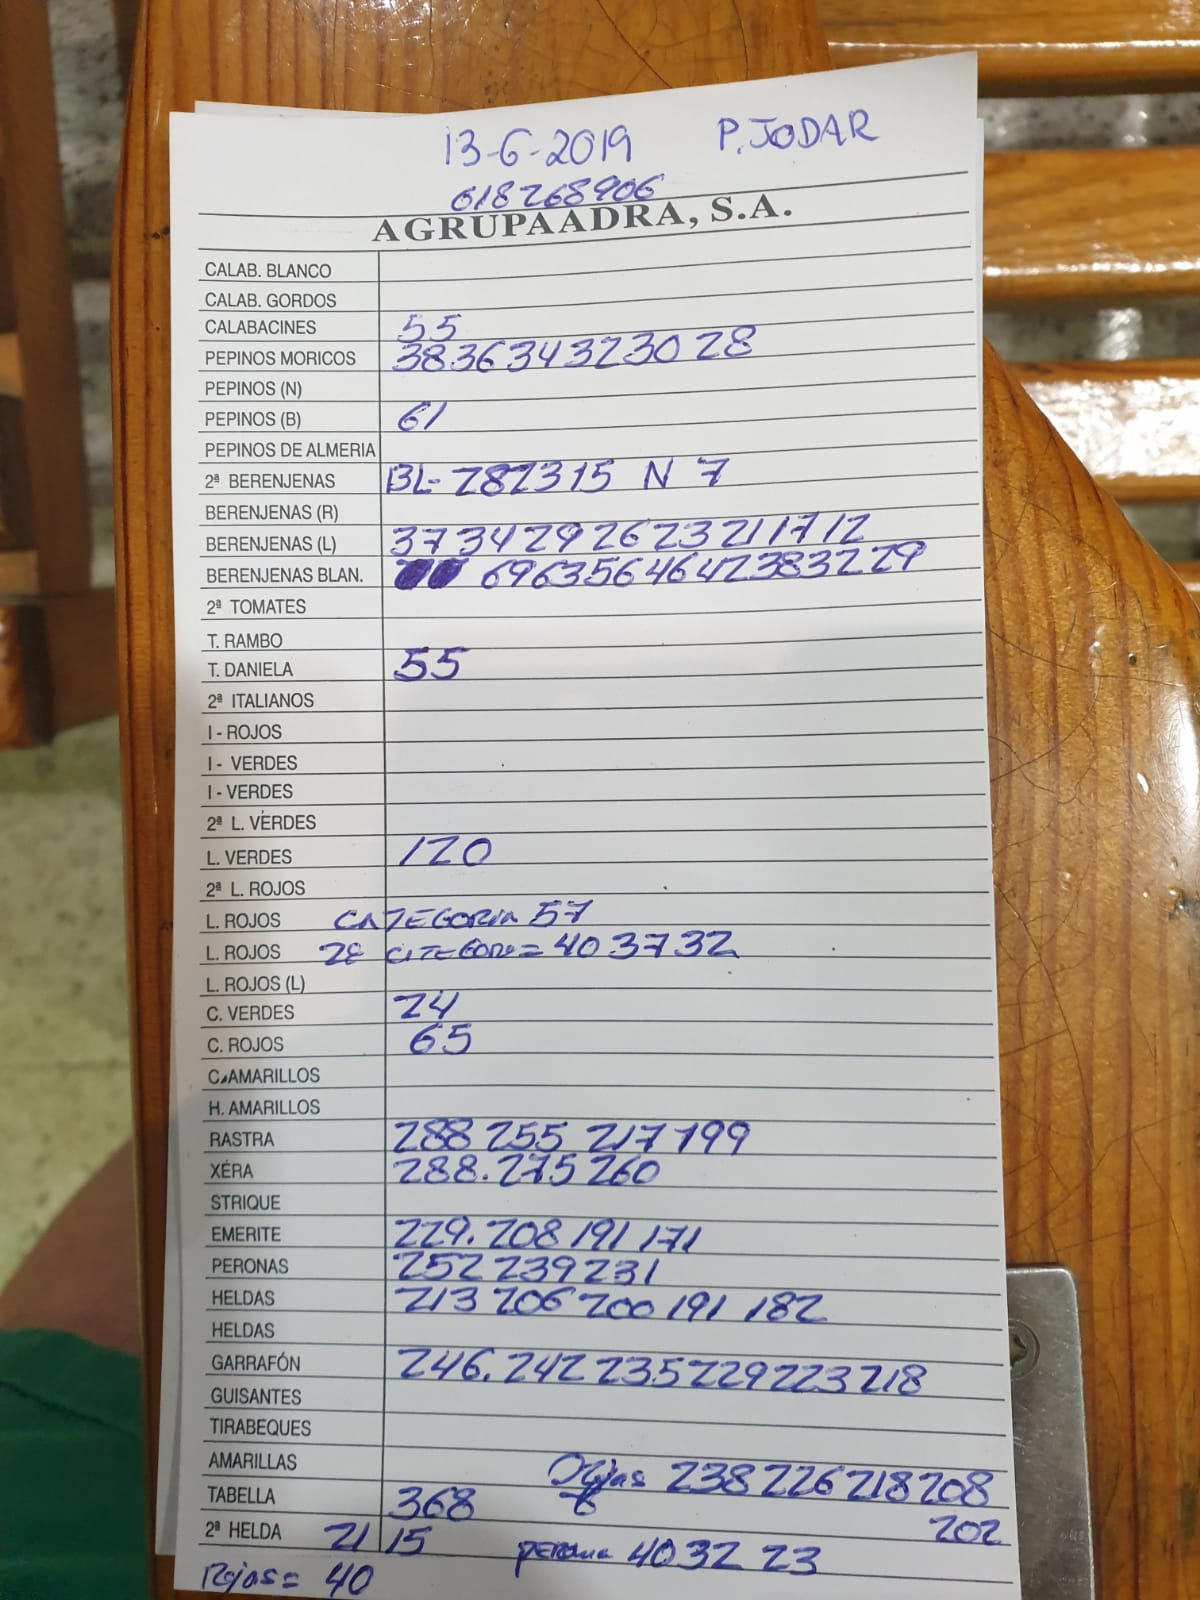 13-6-2019 P. JODAR
618268906
AGRUPAADRA, S.A.
CALAB. BLANCO
CALAB. GORDOS
CALABACINES 55
PEPINOS MORICOS 38 36 34 32 30 28
PEPINOS (N)
PEPINOS (B) 61
PEPINOS DE ALMERIA
2ª BERENJENAS BL- 282315 N 7
BERENJENAS (R)
BERENJENAS (L) 37 34 29 26 23 21 17 12
BERENJENAS BLAN. 69 63 56 46 42 38 32 29
2ª TOMATES
T. RAMBO
T. DANIELA 55
2ª ITALIANOS
I - ROJOS
I - VERDES
I - VERDES
2ª L. VERDES
L. VERDES 120
2ª L. ROJOS
L. ROJOS CATEGORIA 57
L. ROJOS 40 37 32
L. ROJOS (L)
C. VERDES 24
C. ROJOS 65
C. AMARILLOS
H. AMARILLOS
RASTRA 288 255 217 199
XÉRA 288. 275 260
STRIQUE
EMERITE 229. 208 191 171
PERONAS 252 239 231
HELDAS 213 206 200 191 182
HELDAS
GARRAFÓN 246. 242 235 229 223 218
GUISANTES
TIRABEQUES
AMARILLAS 238 226 218 208
TABELLA 368 202
2ª HELDA 21 15 perona 40 32 23
Rojas = 40